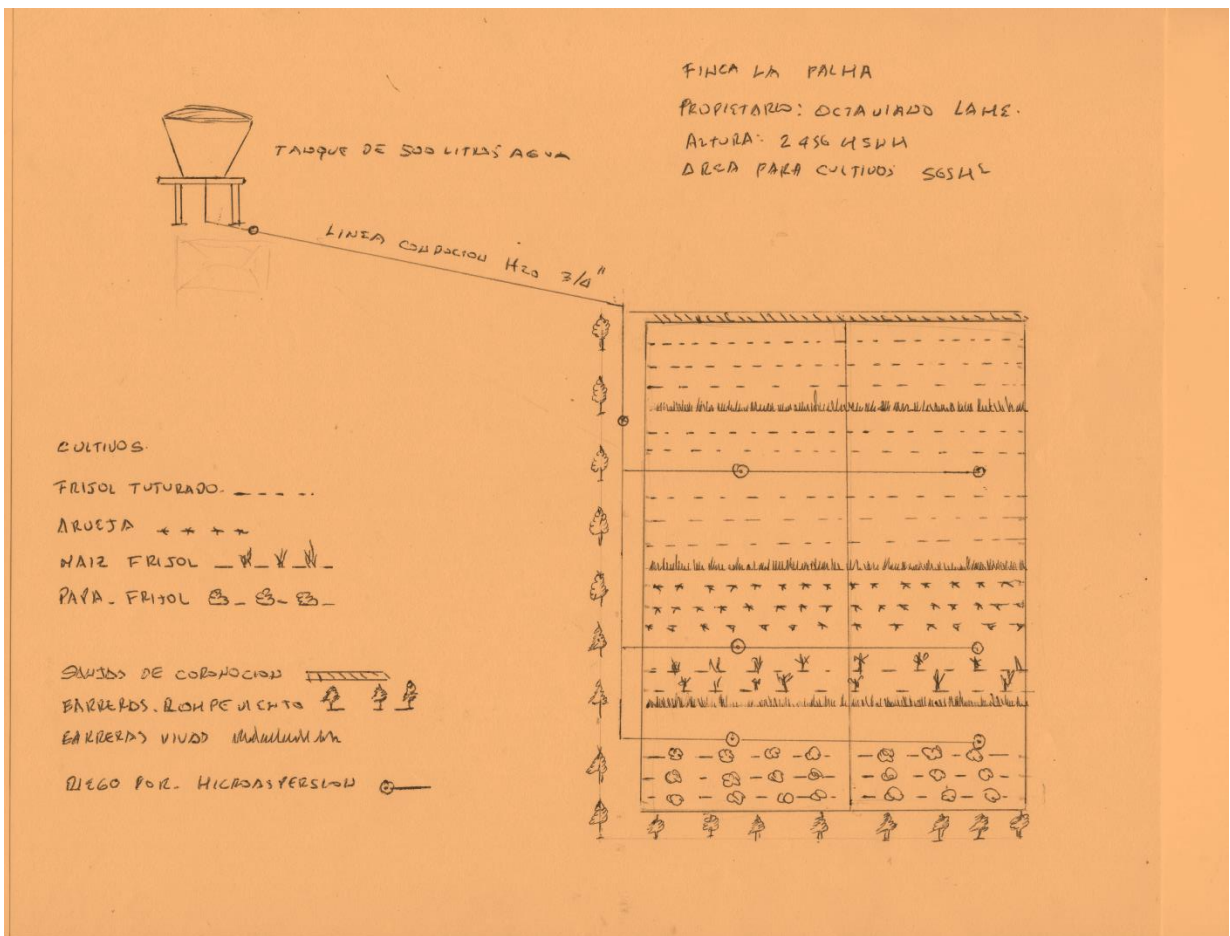 FINCA LA PALMA
PROPIETARIO: OCTAVIANO LAME.
ALTURA: 2456 MSNM
AREA PARA CULTIVOS 565M²
TANQUE DE 500 LITROS AGUA
LINEA CONDUCION H2O 3/4"
CULTIVOS.
FRIJOL TUTURADO.
ARVEJA
MAIZ FRIJOL
PAPA - FRIJOL
SANJAS DE CORONOCION
BARRERAS. ROMPE VIENTO
BARRERAS VIVAS
RIEGO POR. MICROASPERSION